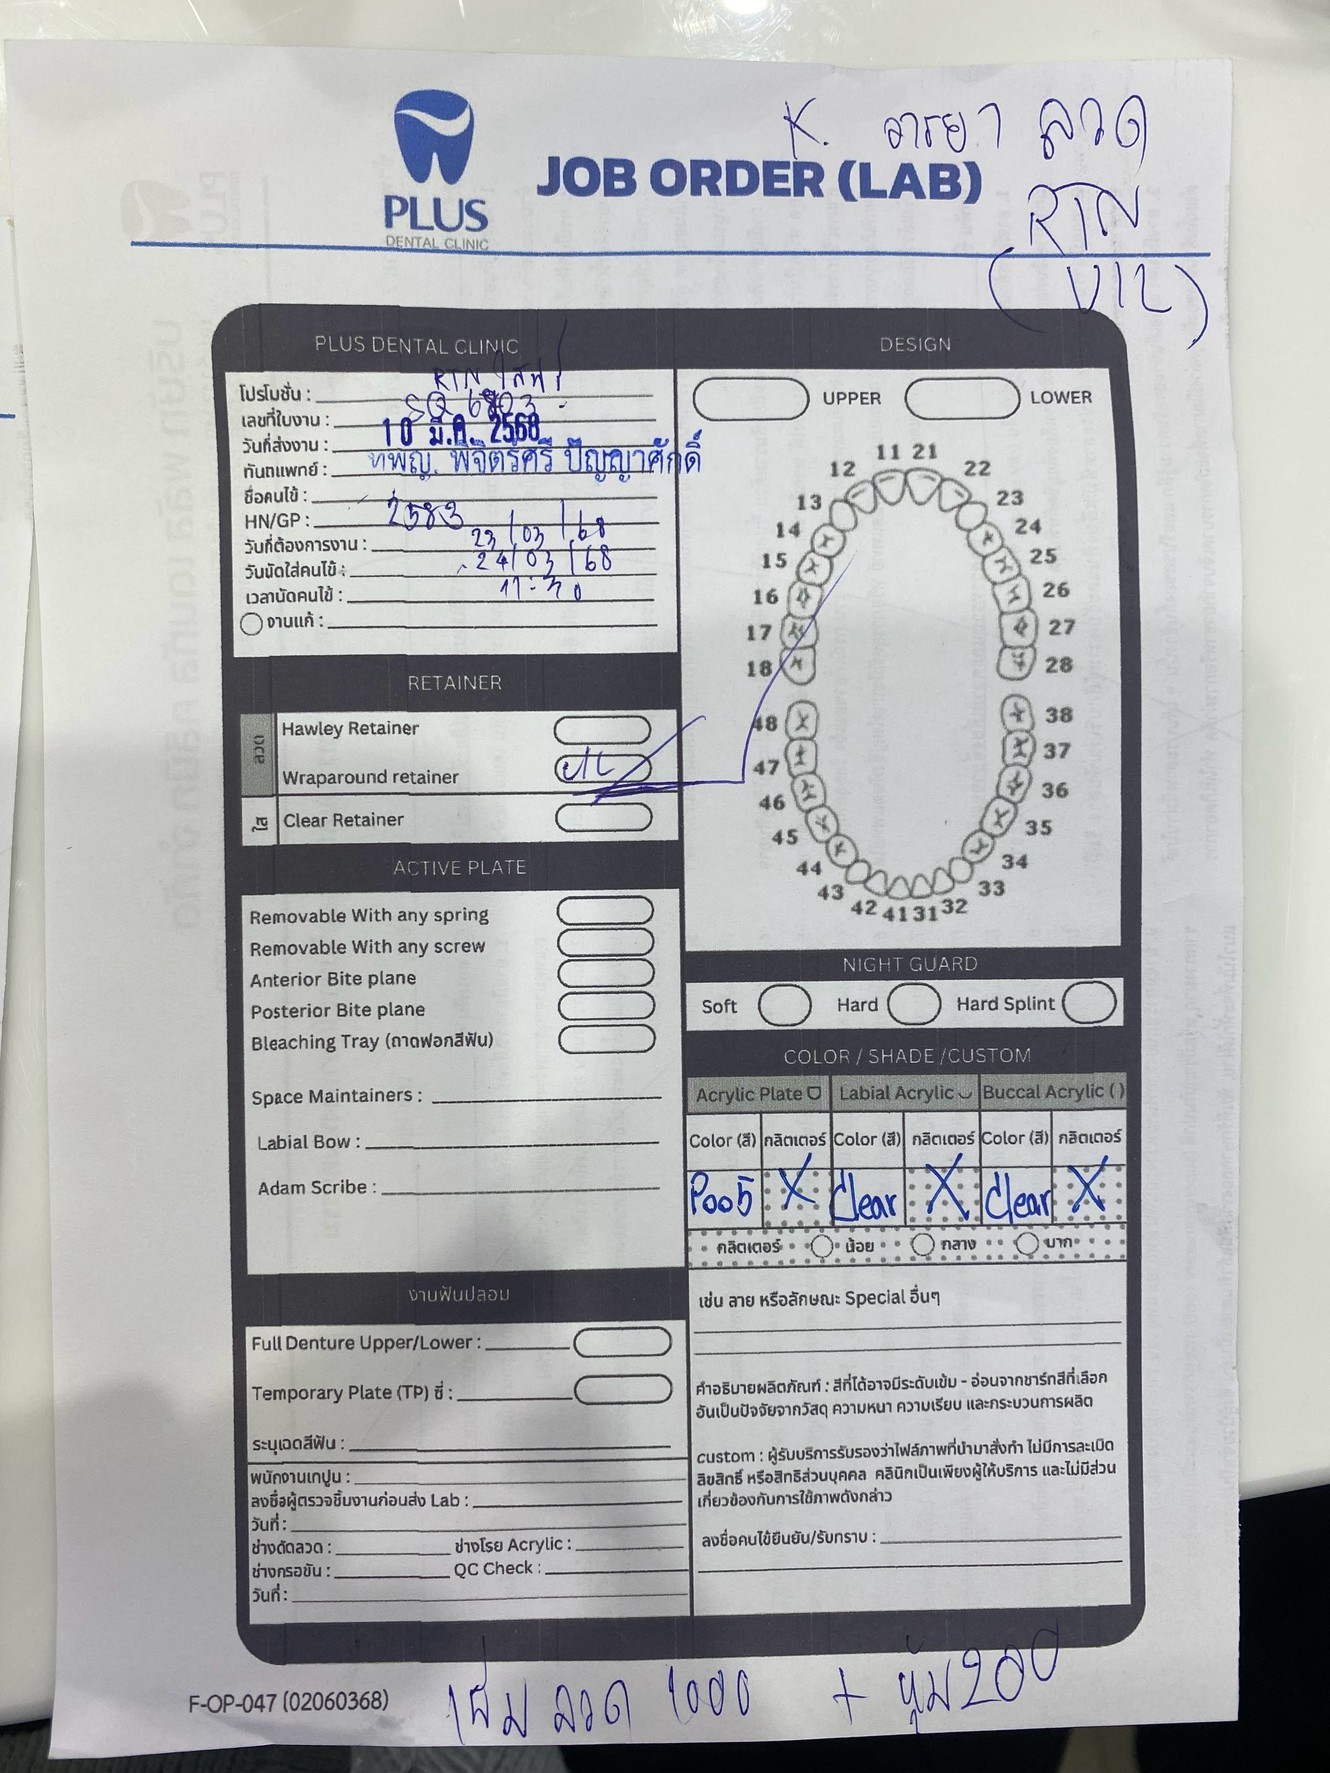 K. อารยา ลวด
RTN
(U/L)
PLUS
DENTAL CLINIC
JOB ORDER (LAB)
PLUS DENTAL CLINIC
โปรโมชั่น : RTN ใสฟรี
เลขที่ใบงาน :
วันที่ส่งงาน : 10 มี.ค. 2568
ทันตแพทย์ : ทพญ. พิจิตร์ศรี ปัญญาศักดิ์
ชื่อคนไข้ :
HN/GP : 2583
วันที่ต้องการงาน : 23/03/68
วันนัดใส่คนไข้ : 24/03/68
เวลานัดคนไข้ : 17:30
งานแก้ :
RETAINER
ลวด
Hawley Retainer
Wraparound retainer U/L
ใส
Clear Retainer
ACTIVE PLATE
Removable With any spring
Removable With any screw
Anterior Bite plane
Posterior Bite plane
Bleaching Tray (ถาดฟอกสีฟัน)
Space Maintainers :
Labial Bow :
Adam Scribe :
งานฟันปลอม
Full Denture Upper/Lower :
Temporary Plate (TP) ซี่ :
ระบุเฉดสีฟัน :
พนักงานเทปูน :
ลงชื่อผู้ตรวจชิ้นงานก่อนส่ง Lab :
วันที่ :
ช่างดัดลวด : ช่างโรย Acrylic :
ช่างกรอขัน : QC Check :
วันที่ :
DESIGN
UPPER LOWER
11 21
12 22
13 23
14 24
15 25
16 26
17 27
18 28
48 38
47 37
46 36
45 35
44 34
43 33
42 41 31 32
NIGHT GUARD
Soft Hard Hard Splint
COLOR / SHADE /CUSTOM
Acrylic Plate Labial Acrylic Buccal Acrylic ( )
Color (สี) กลิตเตอร์ Color (สี) กลิตเตอร์ Color (สี) กลิตเตอร์
P005 X Clear X Clear X
กลิตเตอร์ น้อย กลาง มาก
เช่น ลาย หรือลักษณะ Special อื่นๆ
คำอธิบายผลิตภัณฑ์ : สีที่ได้อาจมีระดับเข้ม - อ่อนจากชาร์ทสีที่เลือก
อันเป็นปัจจัยจากวัสดุ ความหนา ความเรียบ และกระบวนการผลิต
custom : ผู้รับบริการรับรองว่าไฟล์ภาพที่นำมาสั่งทำ ไม่มีการละเมิด
ลิขสิทธิ์ หรือสิทธิส่วนบุคคล คลินิกเป็นเพียงผู้ให้บริการ และไม่มีส่วน
เกี่ยวข้องกับการใช้ภาพดังกล่าว
ลงชื่อคนไข้ยืนยัน/รับทราบ :
F-OP-047 (02060368)
เพิ่ม ลวด 1000 + หุ้ม 200